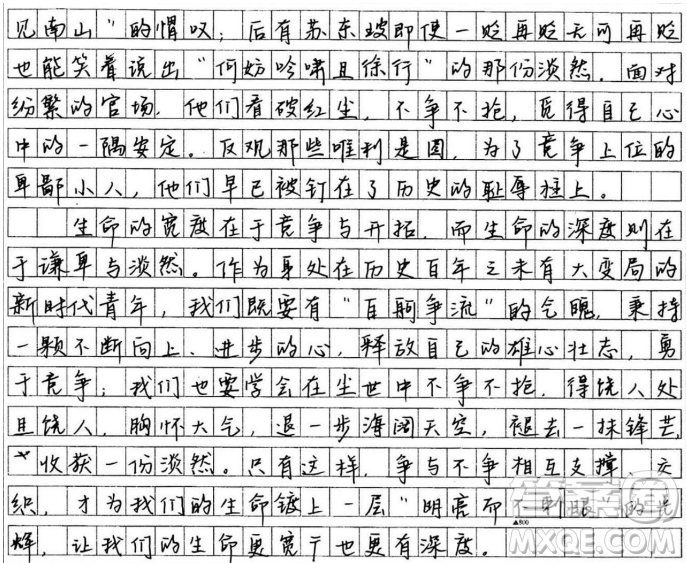 见南山”的慨叹；后有苏东坡即使一贬再贬无可再贬
也能笑着说出“何妨吟啸且徐行”的那份淡然。面对
纷繁的官场，他们看破红尘，不争不抢，觅得自己心
中的一隅安定。反观那些唯利是图，为了竞争上位的
卑鄙小人，他们早已被钉在了历史的耻辱柱上。
生命的宽度在于竞争与开拓，而生命的深度则在
于谦卑与淡然。作为身处在历史百年之未有大变局的
新时代青年，我们既要有“百舸争流”的气魄，秉持
一颗不断向上、进步的心，释放自己的雄心壮志，勇
于竞争；我们也要学会在尘世中不争不抢，得饶人处
且饶人，胸怀大气，退一步海阔天空，褪去一抹锋芒，
收获一份淡然。只有这样，争与不争相互支撑、交
织，才为我们的生命镀上一层“明亮而不刺眼”的光
辉，让我们的生命更宽广也更有深度。
▲800
MXQE.COM